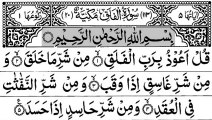 اٰیاتها ۵ (۱۱۳) سُوْرَةُ الْفَلَقِ مَكِّيَّةٌ (۲۰) رُكُوْعُهَا ۱
بِسْمِ اللهِ الرَّحْمٰنِ الرَّحِيْمِ
قُلْ اَعُوْذُ بِرَبِّ الْفَلَقِ ۙ وَمِنْ شَرِّ مَا خَلَقَ ۙ وَ
مِنْ شَرِّ غَاسِقٍ اِذَا وَقَبَ ۙ وَمِنْ شَرِّ النَّفّٰثٰتِ
فِي الْعُقَدِ ۙ وَمِنْ شَرِّ حَاسِدٍ اِذَا حَسَدَ